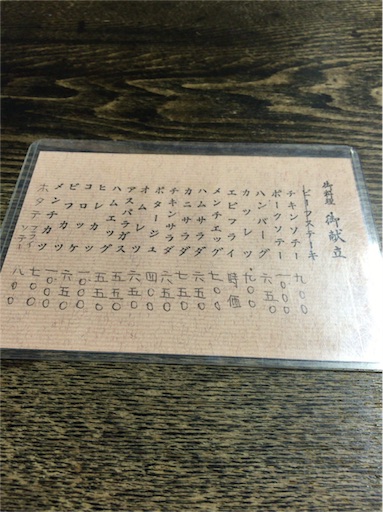 御料理 御献立
ビーフステーキ
チキンソテー 九〇〇
ポークソテー 一〇〇〇
ハンバーグ 六五〇
カツレツ 九〇〇
エビフライ 時価
メンチエッグ 七〇〇
ハムサラダ 六五〇
カニサラダ 七五〇
チキンサラダ 六五〇
ポタージュ 四〇〇
オムレツ 六五〇
アスパラガス 五五〇
ハムエッグ 五五〇
ヒレカツ 一〇〇〇
コロッケ 六五〇
ビフカツ 一〇〇〇
メンチカツ 七〇〇
ホタテ フライ ソテー 八〇〇